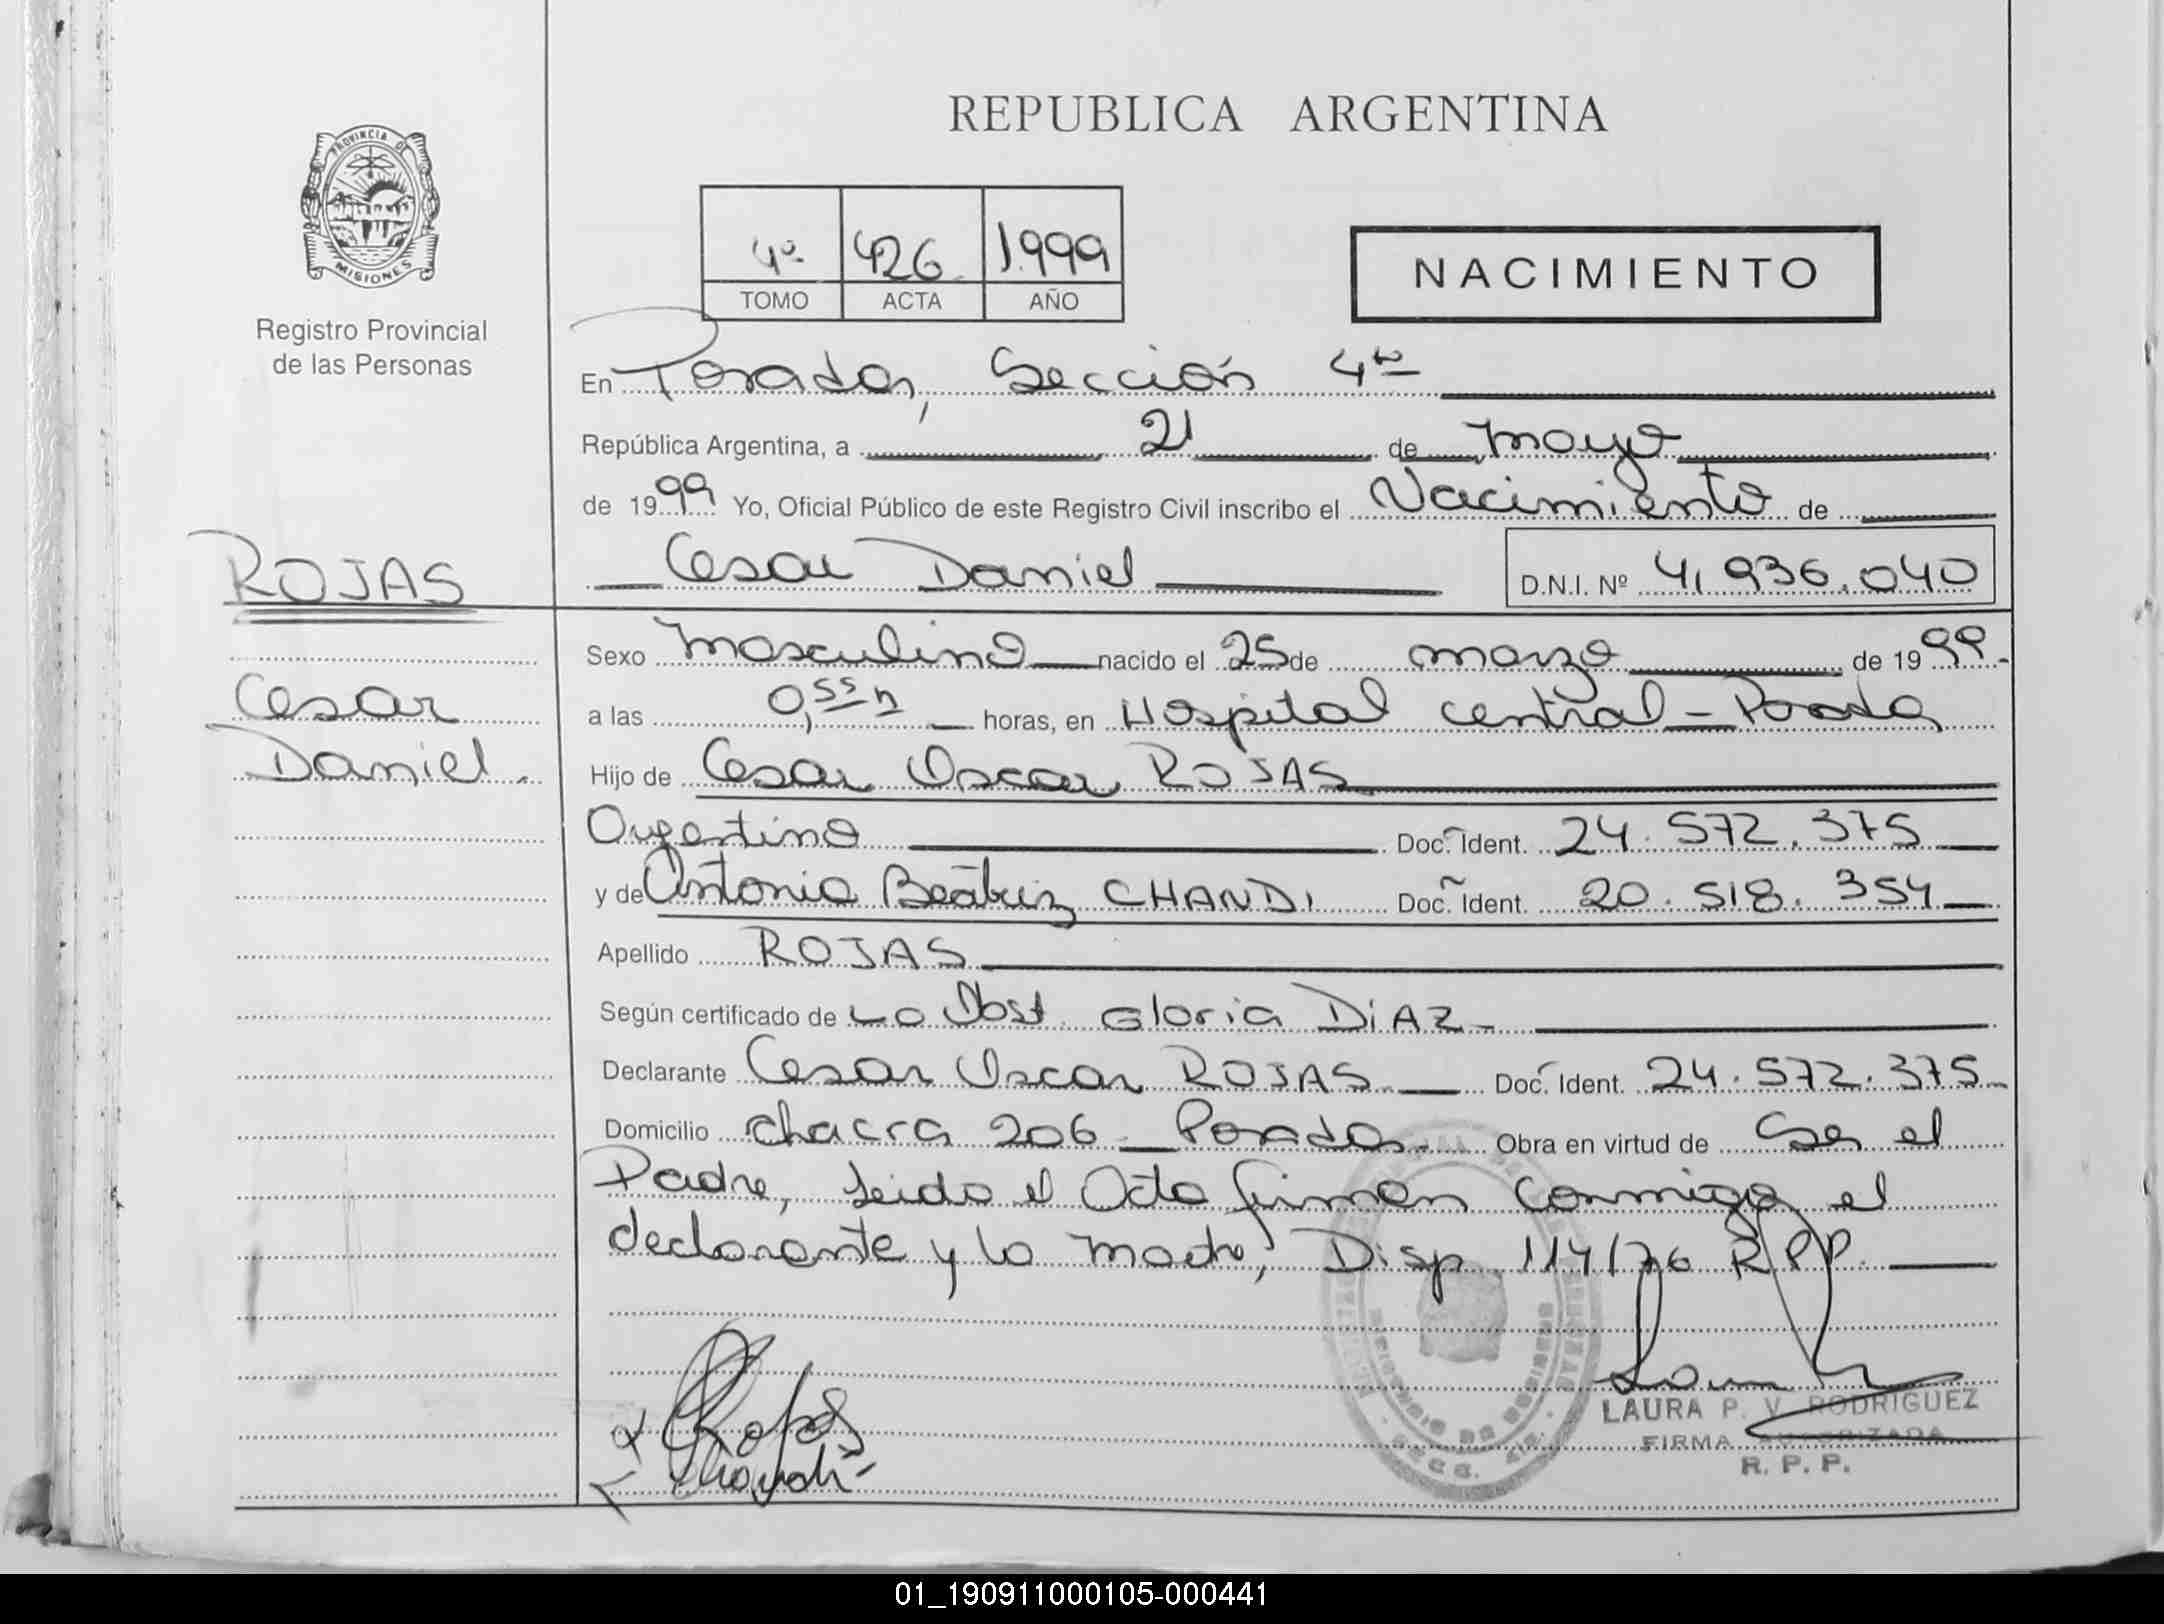 REPUBLICA ARGENTINA
PROVINCIA DE
MISIONES
Registro Provincial
de las Personas
4º 426 1.999
TOMO ACTA AÑO
NACIMIENTO
En Posadas, Sección 4ta
República Argentina, a 21 de mayo
de 1999 Yo, Oficial Público de este Registro Civil inscribo el Nacimiento de
Cesar Daniel D.N.I. Nº 41.936.040
ROJAS
Cesar
Daniel.
Sexo masculino nacido el 25 de marzo de 1999.
a las 0,55 h horas, en Hospital central - Posadas
Hijo de Cesar Oscar ROJAS
Argentino Doc. Ident. 24.572.375
y de Antonia Beatriz CHANDI Doc. Ident. 20.518.354
Apellido ROJAS
Según certificado de La Obst. Gloria DIAZ
Declarante Cesar Oscar ROJAS Doc. Ident. 24.572.375
Domicilio chacra 206 - Posadas Obra en virtud de Ser el
Padre, Leida el Acta firman conmigo el
declarante y la madre, Disp. 114/76 R.P.P.
Rojas
LAURA P. V. RODRIGUEZ
FIRMA AUTORIZADA
R. P. P.
01_190911000105-000441